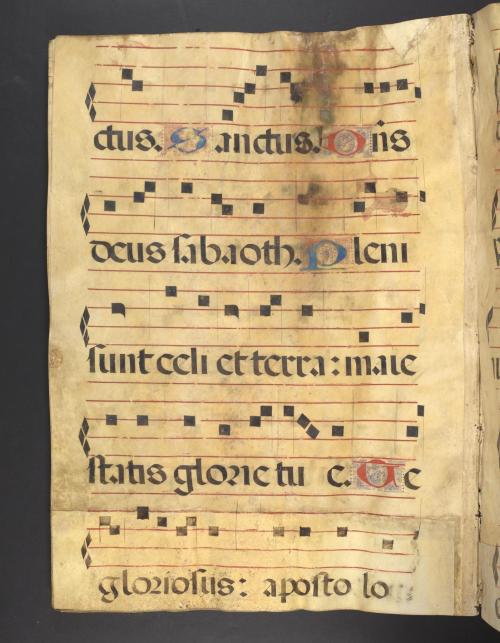 ctus. Sanctus. Dñs
deus sabaoth. Pleni
sunt celi et terra: maie
statis glorie tu e. Te
gloriosus: aposto lo